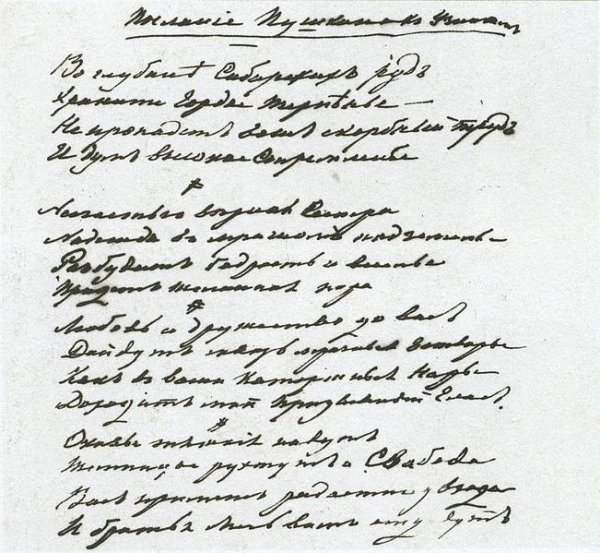 Посланіе Пушкина къ Узникам
Во глубинѣ Сибирскихъ рудъ
Храните Гордое Терпѣнье —
Не пропадетъ вашъ скорбный трудъ
И думъ высокое Стремленье
Несчастью вѣрная Сестра
Надежда въ мрачномъ подземелье
Разбудитъ бодрость и веселье
Придетъ желанная пора
Любовь и дружество до васъ
Дойдутъ сквозь мрачные затворы
Какъ въ ваши Каторжные Норы
Доходитъ мой призывный Гласъ.
Оковы тяжкія падутъ
Темницы рухнутъ и Свобода
Васъ приметъ радостно у входа
И братья Мечь вамъ